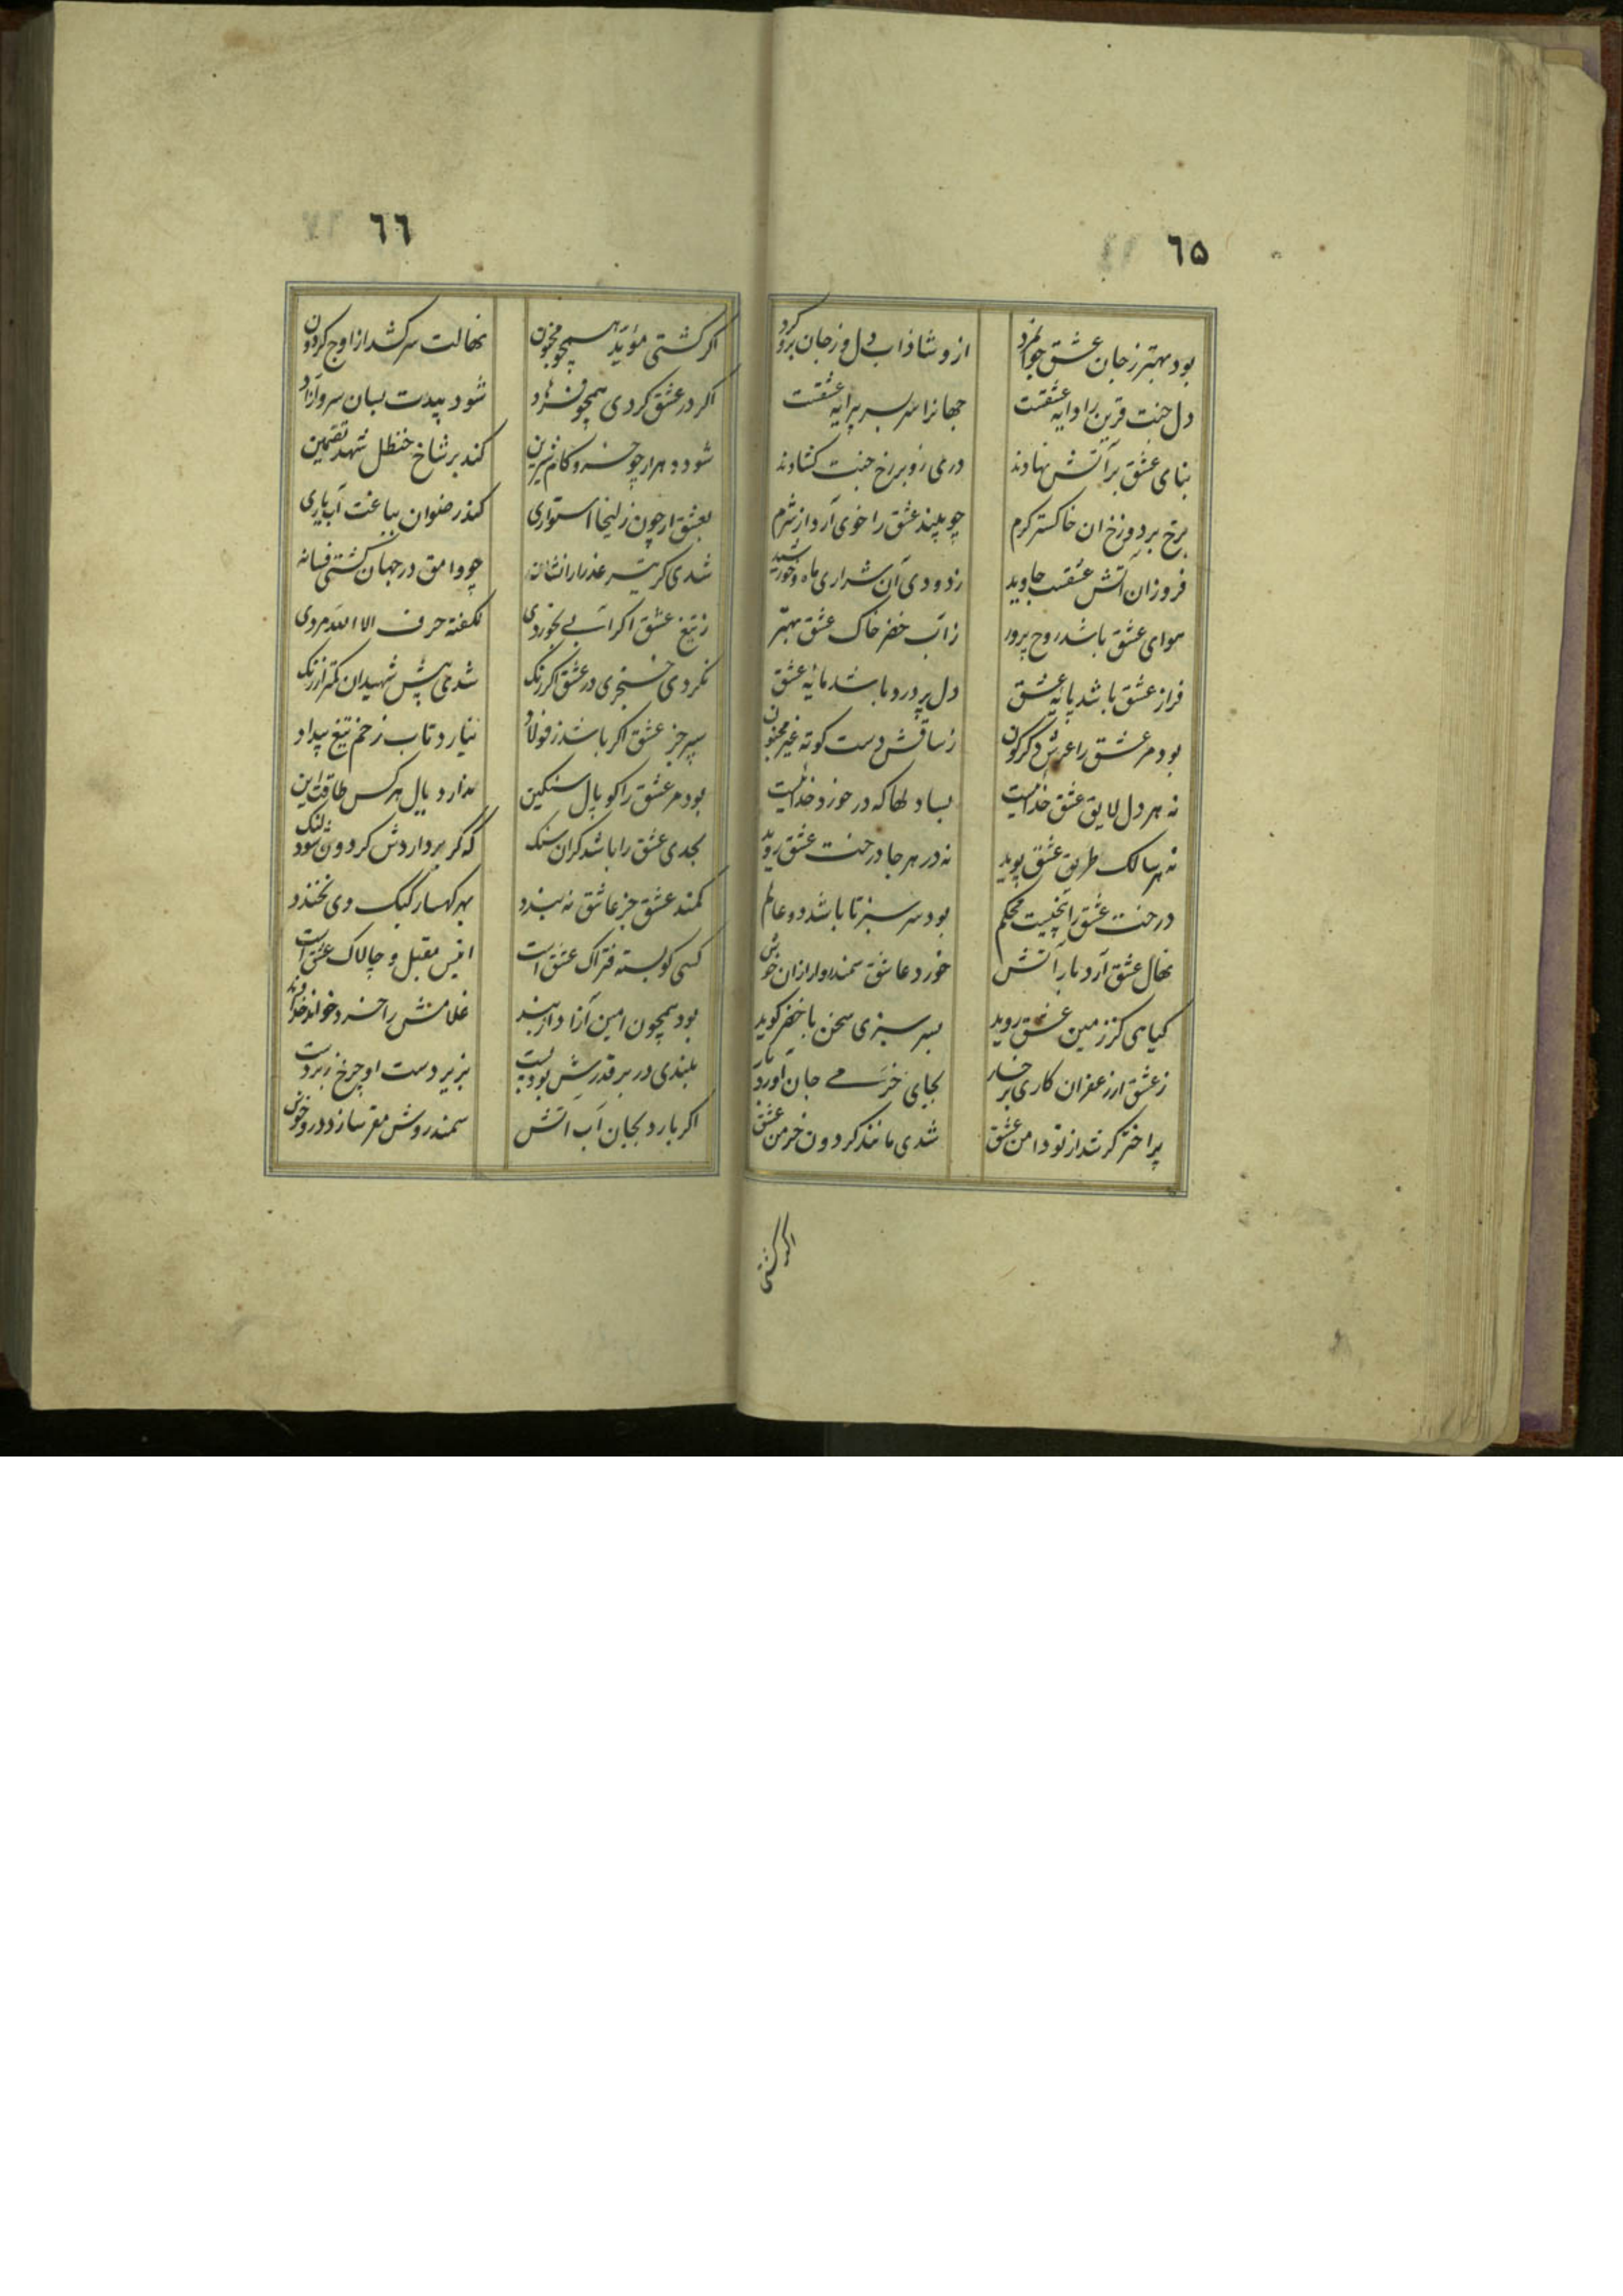 ٦۵
بود بهتر ز جان عشق جوانمرد ازو شاداب دل وز جان برو کرد
دل جنت قرین را دایه عشقست جهانرا سر بسر پیرایه عشقست
بنای عشق بر آتش نهادند درمی زو بر رخ جنت کشادند
برخ بر دوزخ ان خاکستر کرم چو بیند عشق را خوی آرد از شرم
فروزان آتش عشقست جاوید ز دودی آن شراری ماه و خورشید
هوای عشق باشد روح پرور ز آب خضر خاک عشق بهتر
فراز عشق باشد پایه عشق دل پر درد باشد مایه عشق
بود مر عشق را عرش دکرکون ز ساقش دست کوته غیر مجنون
نه هر دل لایق عشق خدائیست بسا دلها که در خورد خدائیست
نه هر سالک طریق عشق پوید نه در هر جا درخت عشق روید
درخت عشق را بیخیست محکم بود سر سبز تا باشد دو عالم
نهال عشق آرد بار آتش خورد عاشق سمندروار ازان خوش
کیاهی کز زمین عشق روید بسر سبزی سخن با خضر کوید
ز عشق ار زعفران کاری بر خسار بجای خرمی جان آورد بار
پر اختر کر شد از تو دامن عشق شدی مانند کردون خرمن عشق
اکر کشتی
٦٦
اکر کشتی مؤید همچو مجنون نهالت سر کشد از اوج کردون
اکر در عشق کردی همچو فرهاد شود بیدت بسان سرو آزاد
شود دهرار چو خسرو کام شیرین کند بر شاخ حنظل شهد تضمین
بعشق ار چون زلیخا استواری کند رضوان بباغت آب یاری
شدی کر تیر عذرا را نشانه چو وامق در جهان کشتی فسانه
ز تیغ عشق اکر آبی نخوردی نکفته حرف الا الله مردی
نکردی خنجری در عشق اکر رنک شدی پیش شهیدان کمتر از زنک
سپر جز عشق اکر باشد ز فولاد نیارد تاب زخم تیغ بیداد
بود مر عشق را کوپال سنکین ندارد یال هر کس طاقت این
بجدی عشق را باشد کران سنک که کر برداردش کردون شود لنک
کمند عشق جز عاشق نه بندد بهر کهسار کبک وی نخندد
کسی کو بسته فتراک عشق است انیس مقبل و چالاک عشق است
بود همچون امین آزاد از بند غلامش را خرد خواند خداوند
بلندی در بر قدرش بود پست بزیر دست او چرخ زبردست
اکر بارد بجان آب آتش سمندروش مقر سازد درو خوش